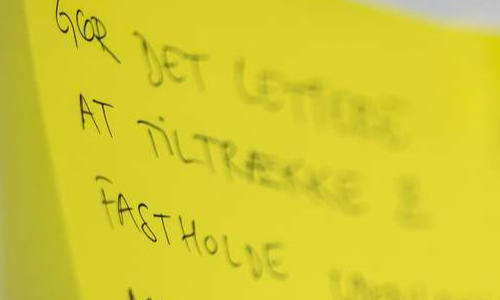 GØR DET LETTERE
AT TILTRÆKKE &
FASTHOLDE